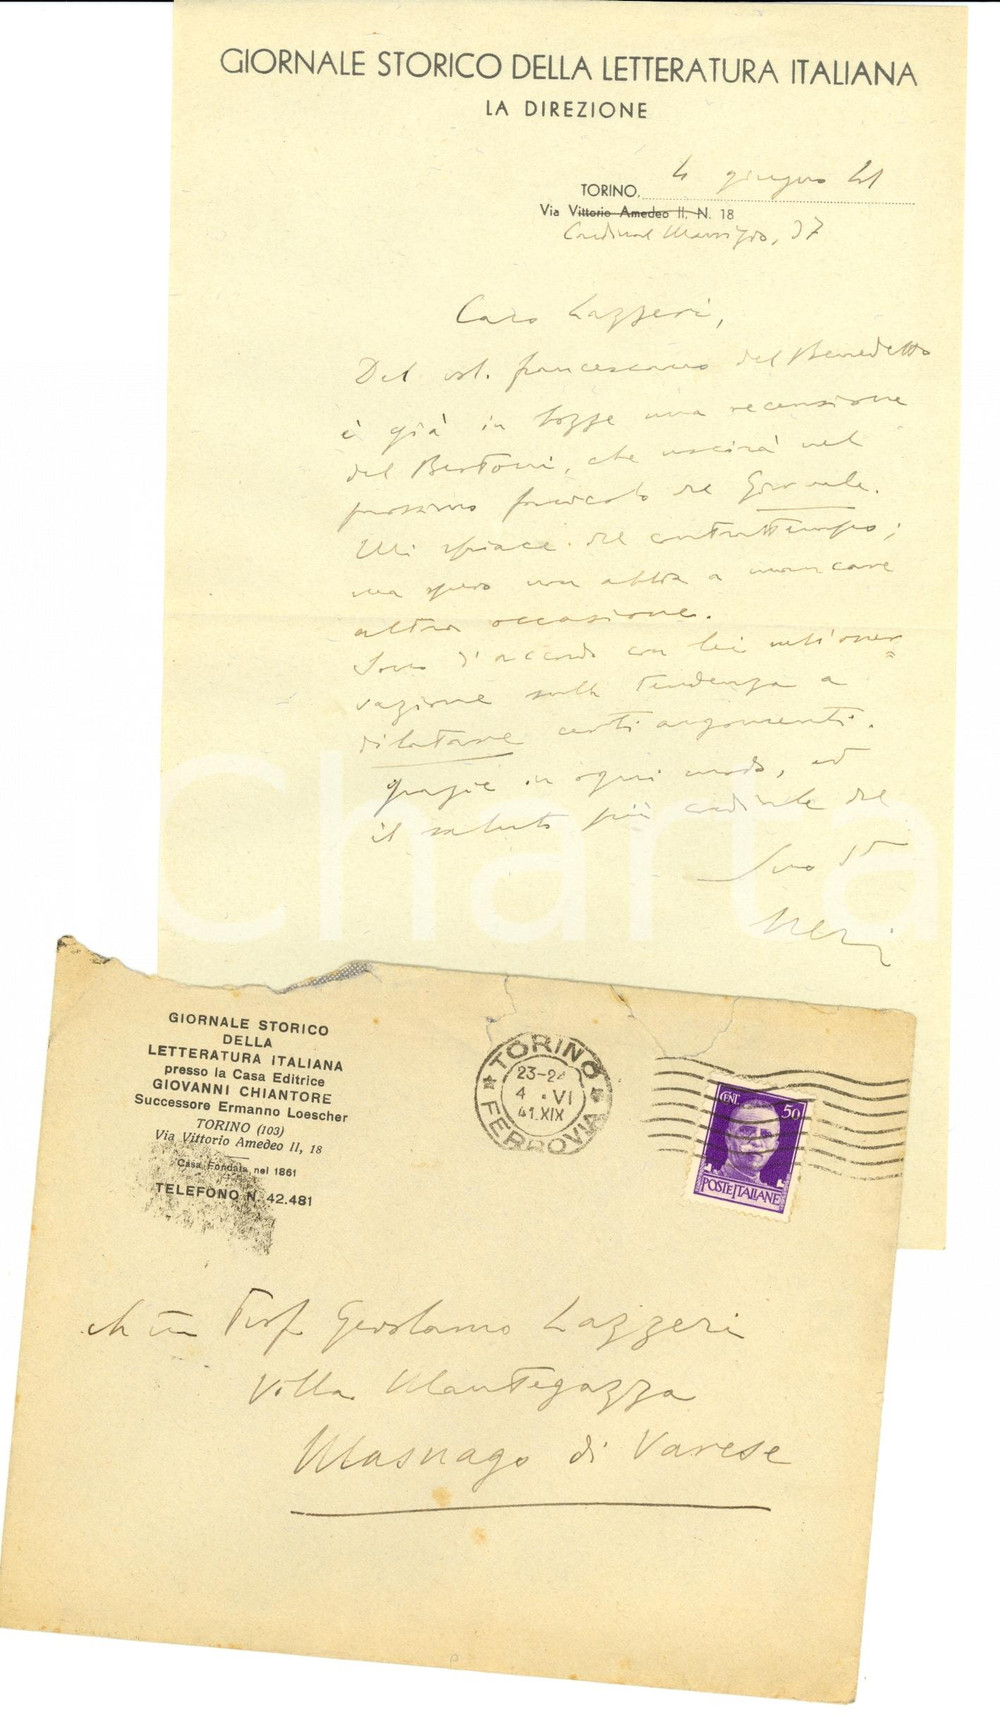 GIORNALE STORICO DELLA LETTERATURA ITALIANA
LA DIREZIONE
TORINO, 4 giugno 41
Via Vittorio Amedeo II, N. 18
Cardinal Maurizio, 37
Caro Lazzeri,
Del vol. francescano del Benedetto
è già in bozze una recensione
del Bertoni, che uscirà nel
prossimo fascicolo del Giornale.
Mi spiace del contrattempo;
ma spero non abbia a mancare
altra occasione.
Sono d'accordo con lei nell'osser=
vazione sulla tendenza a
dilatare certi argomenti.
Grazie in ogni modo, ed
il saluto più cordiale del
Suo
Neri
iCharta
GIORNALE STORICO
DELLA
LETTERATURA ITALIANA
presso la Casa Editrice
GIOVANNI CHIANTORE
Successore Ermanno Loescher
TORINO (103)
Via Vittorio Amedeo II, 18
Casa Fondata nel 1861
TELEFONO N. 42.481
TORINO
23-24
4 . VI
41.XIX
FERROVIA
CENT. 50
POSTE ITALIANE
Prof. Gerolamo Lazzeri
Villa Mantegazza
Masnago di Varese